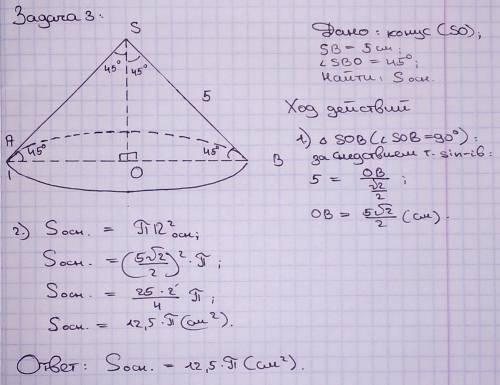 Задача 3:
S
45° 45°
5
A
45° 45°
O
B
Дано: конус (SO);
SB = 5 см;
∠SBO = 45°;
Найти: Sосн.
Ход действий
1) △ SOB (∠SOB=90°):
за следствием т. sin-ів:
5 = OB / (√2/2) ;
OB = 5√2/2 (см).
2) Sосн. = πR²осн;
Sосн. = (5√2/2)² · π;
Sосн. = 25·2/4 π;
Sосн. = 12,5·π(см²).
Ответ: Sосн. = 12,5·π(см²).